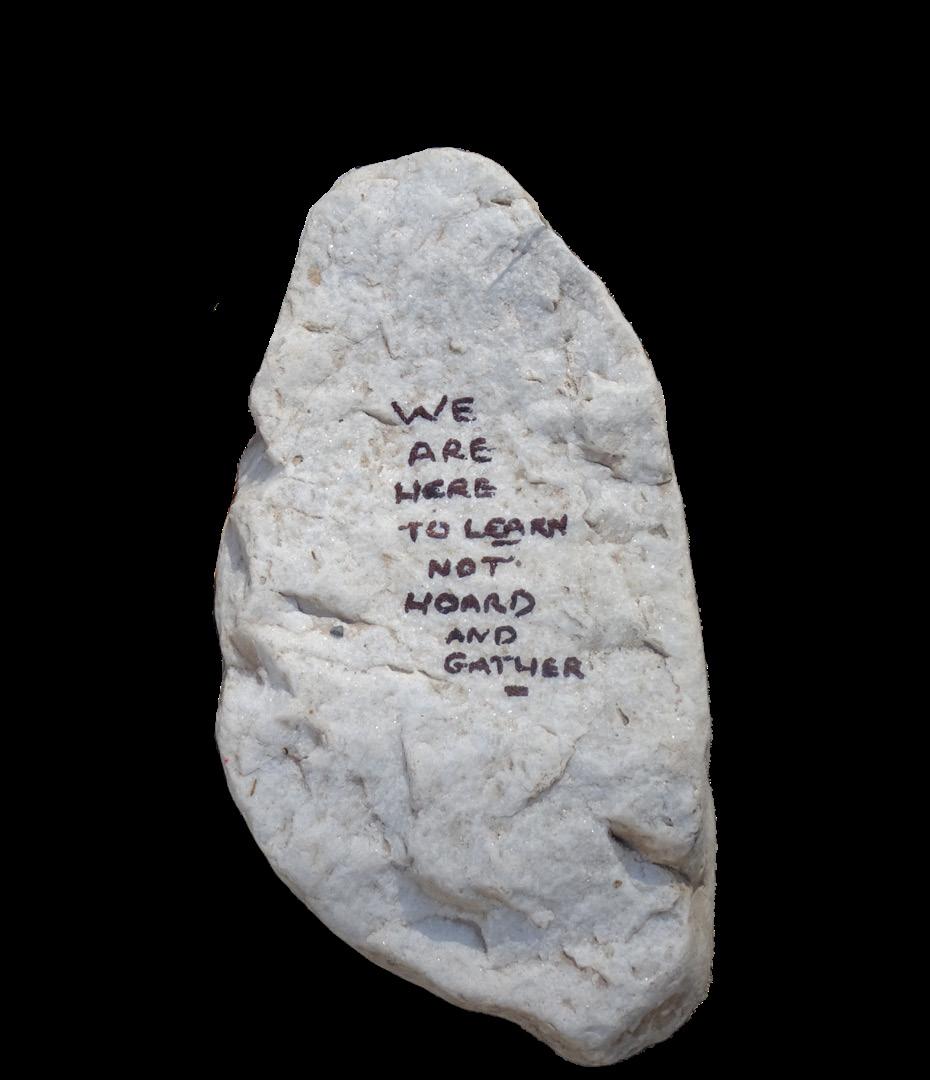 WE
ARE
HERE
TO LEARN
NOT
HOARD
AND
GATHER